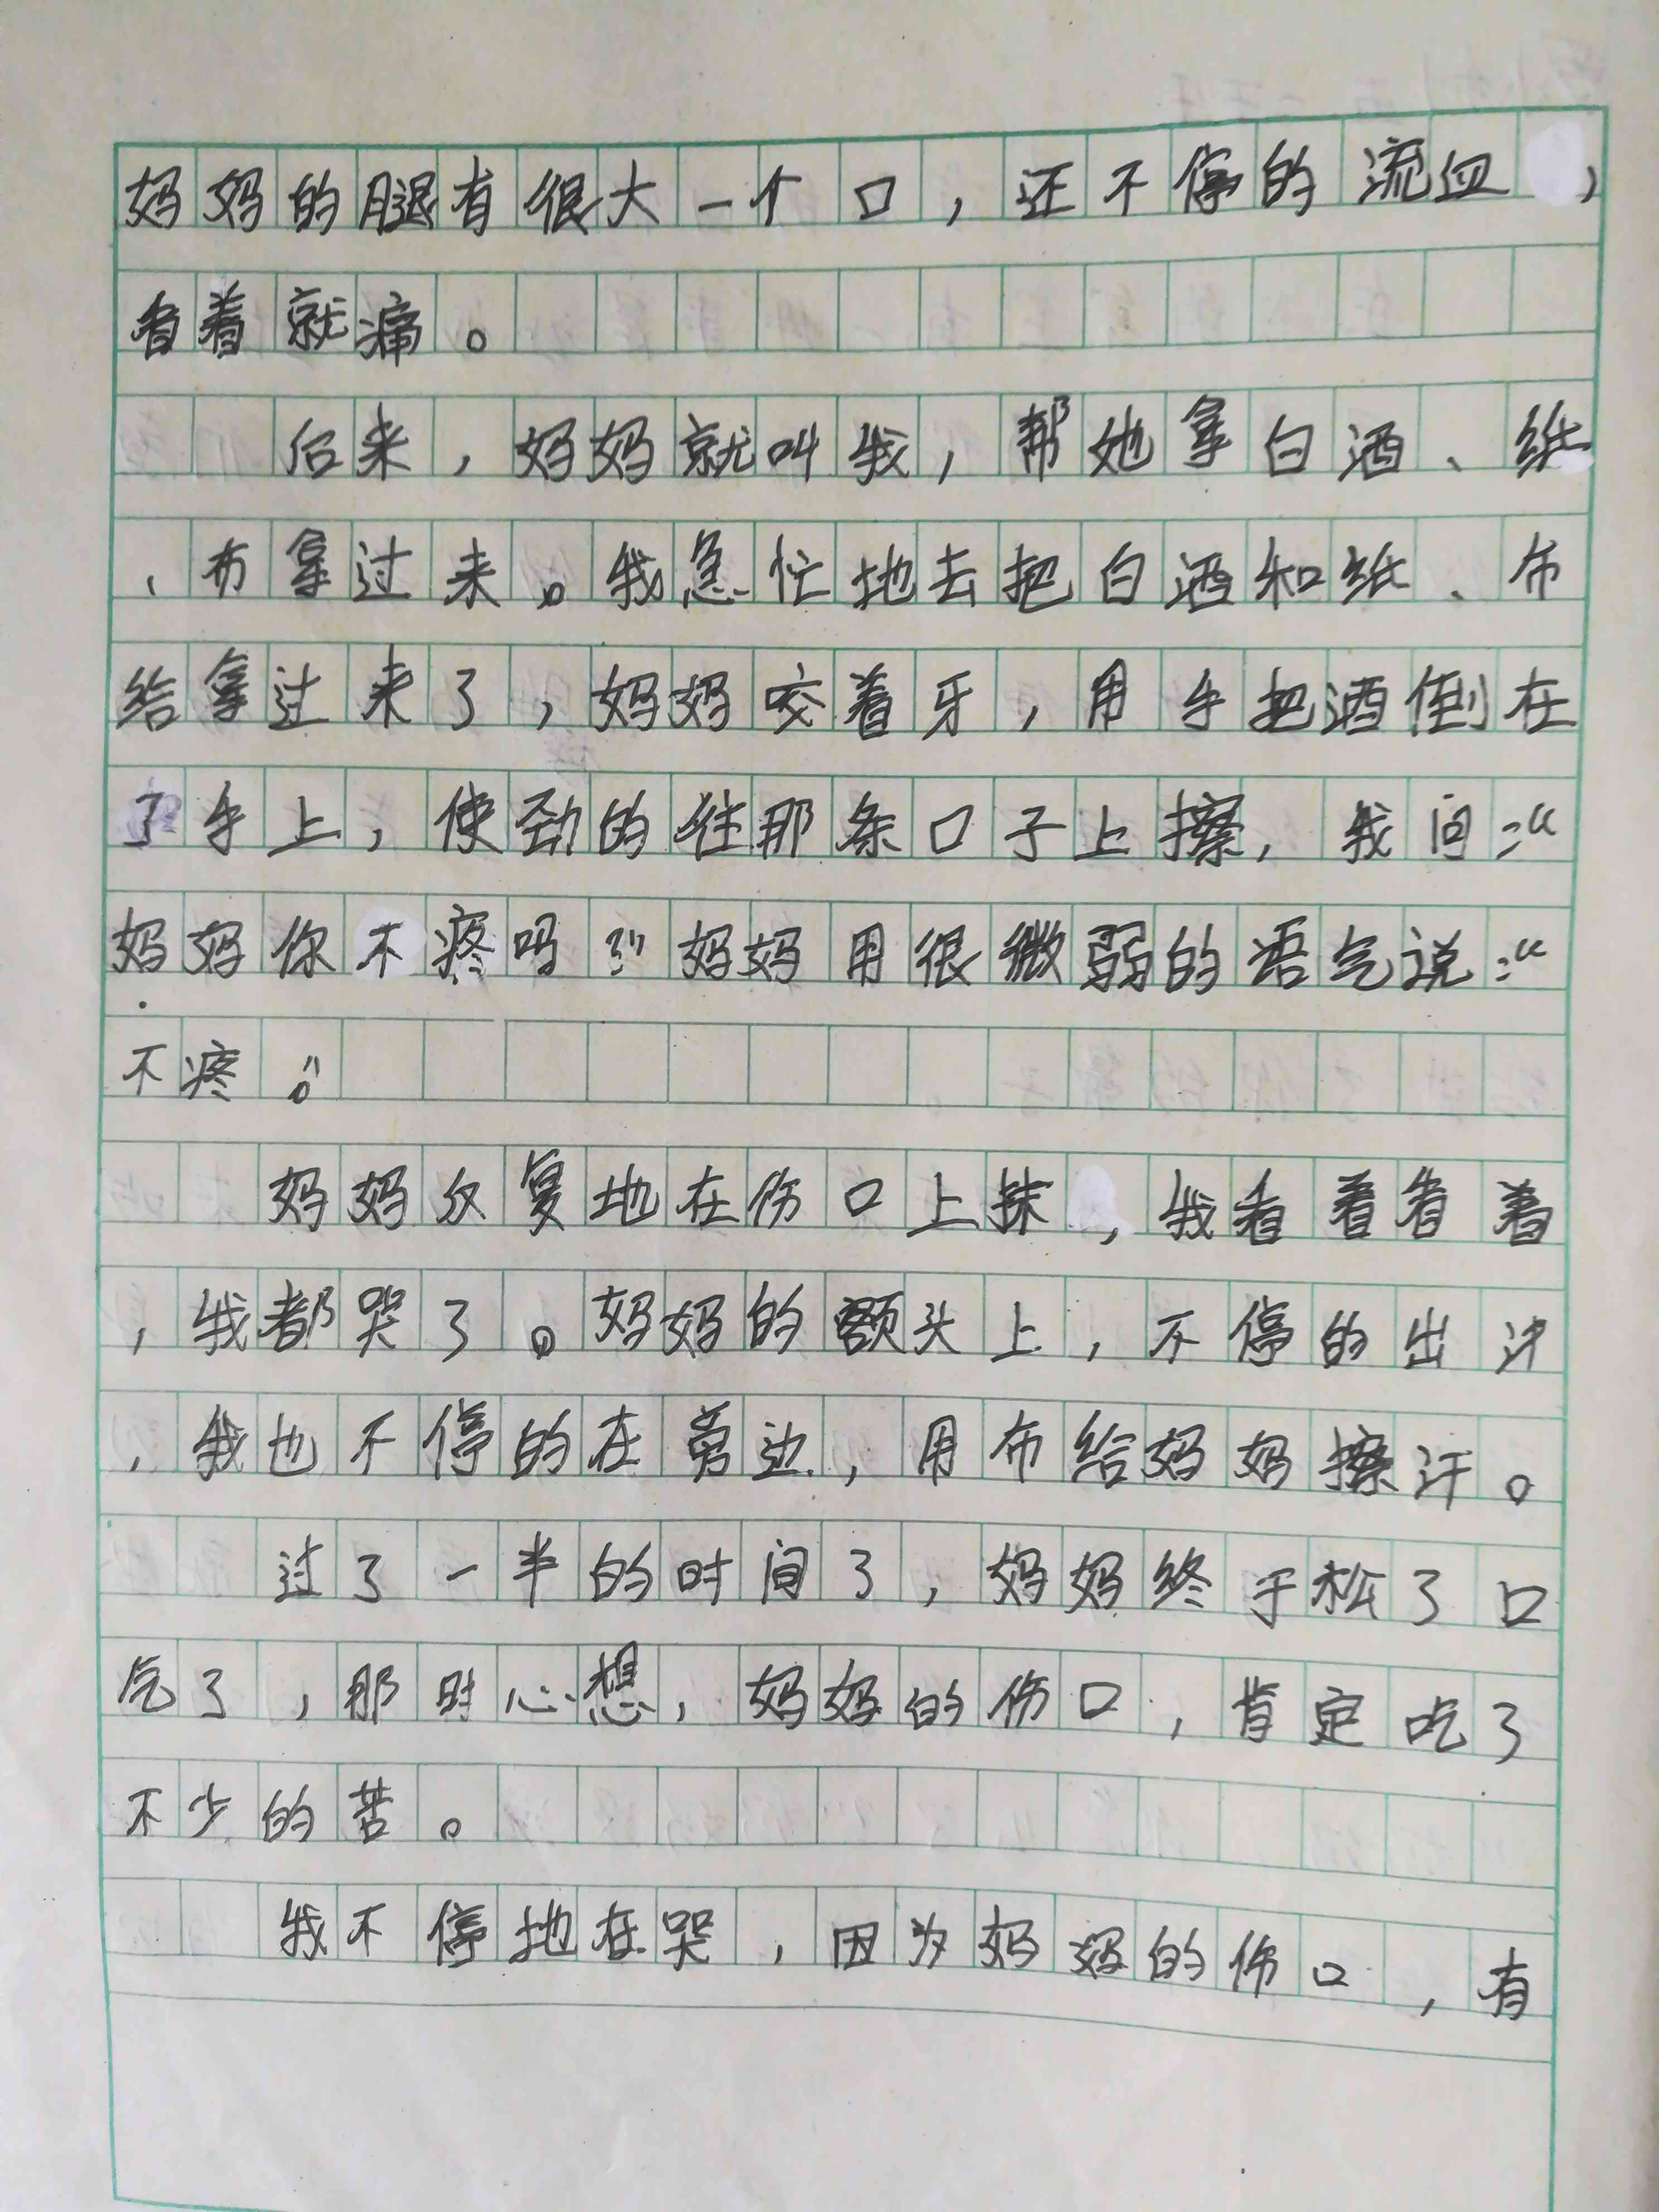 妈妈的腿有很大一个口，还不停的流血，
看着就痛。
后来，妈妈就叫我，帮她拿白酒、纸
、布拿过来。我急忙地去把白酒和纸、布
给拿过来了，妈妈咬着牙，用手把酒倒在
了手上，使劲的往那条口子上擦，我问：“
妈妈你不疼吗？”妈妈用很微弱的语气说：“
不疼。”
妈妈反复地在伤口上抹，我看着看着
，我都哭了。妈妈的额头上，不停的出汗
，我也不停的在旁边，用布给妈妈擦汗。
过了一半的时间了，妈妈终于松了口
气了，那时心想，妈妈的伤口，肯定吃了
不少的苦。
我不停地在哭，因为妈妈的伤口，有